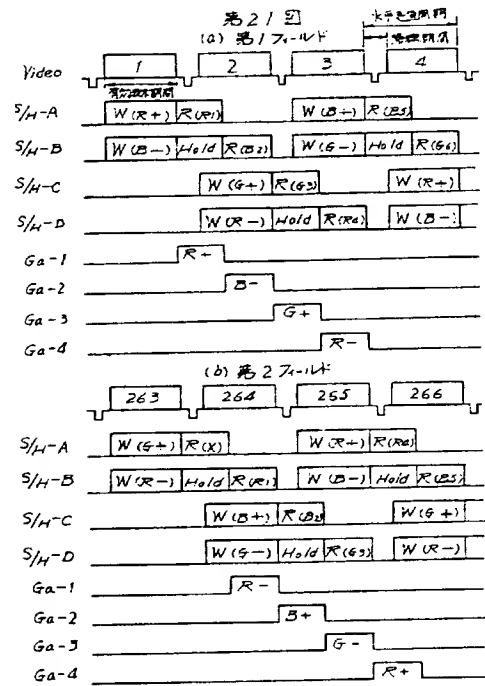 第21図
(a) 第1フィールド
水平走査期間
帰線期間
Video 1 2 3 4
有効映像期間
S/H-A W(R+) R(R1) W(B+) R(B5)
S/H-B W(B-) Hold R(B2) W(G-) Hold R(G6)
S/H-C W(G+) R(G3) W(R+)
S/H-D W(R-) Hold R(R4) W(B-)
Ga-1 R+
Ga-2 B-
Ga-3 G+
Ga-4 R-
(b) 第2フィールド
263 264 265 266
S/H-A W(G+) R(X) W(R+) R(R4)
S/H-B W(R-) Hold R(R1) W(B-) Hold R(B5)
S/H-C W(B+) R(B2) W(G+)
S/H-D W(G-) Hold R(G3) W(R-)
Ga-1 R-
Ga-2 B+
Ga-3 G-
Ga-4 R+